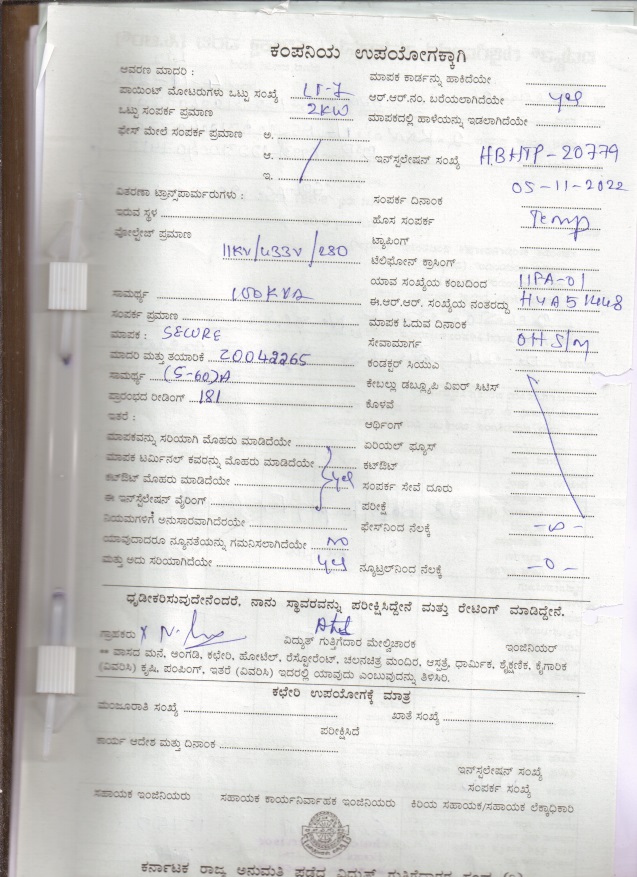 ಕಂಪನಿಯ ಉಪಯೋಗಕ್ಕಾಗಿ
ಆವರಣ ಮಾದರಿ : ಮಾಪಕ ಕಾರ್ಡನ್ನು ಹಾಕಿದೆಯೇ
ಪಾಯಿಂಟ್ ಮೋಟರುಗಳು ಒಟ್ಟು ಸಂಖ್ಯೆ LT-7 ಆರ್.ಆರ್.ನಂ. ಬರೆಯಲಾಗಿದೆಯೇ yes
ಒಟ್ಟು ಸಂಪರ್ಕ ಪ್ರಮಾಣ 2KW ಮಾಪಕದಲ್ಲಿ ಹಾಳೆಯನ್ನು ಇಡಲಾಗಿದೆಯೇ
ಫೇಸ್ ಮೇಲೆ ಸಂಪರ್ಕ ಪ್ರಮಾಣ ಅ.
ಆ. ಇನ್‌ಸ್ಟಲೇಷನ್ ಸಂಖ್ಯೆ HBHTP-20779
ಇ.
05-11-2022
ವಿತರಣಾ ಟ್ರಾನ್ಸ್‌ಪಾರ್ಮರುಗಳು : ಸಂಪರ್ಕ ದಿನಾಂಕ
ಇರುವ ಸ್ಥಳ ಹೊಸ ಸಂಪರ್ಕ Temp
ವೋಲ್ಟೇಜ್ ಪ್ರಮಾಣ ಟ್ಯಾಪಿಂಗ್
11KV/433V/280 ಟೆಲಿಫೋನ್ ಕ್ರಾಸಿಂಗ್
ಯಾವ ಸಂಖ್ಯೆಯ ಕಂಬದಿಂದ 11PA-01
ಸಾಮರ್ಥ್ಯ 100KVA ಈ.ಆರ್.ಆರ್. ಸಂಖ್ಯೆಯ ನಂತರದ್ದು H4A51448
ಸಂಪರ್ಕ ಪ್ರಮಾಣ ಮಾಪಕ ಓದುವ ದಿನಾಂಕ
ಮಾಪಕ : SECURE ಸೇವಾಮಾರ್ಗ OH S/M
ಮಾದರಿ ಮತ್ತು ತಯಾರಿಕೆ 20042265 ಕಂಡಕ್ಟರ್ ಸಿಯುಎ
ಸಾಮರ್ಥ್ಯ (5-60)A ಕೇಬಲ್ಲು ಡಬ್ಲ್ಯೂಪಿ ವಿಐರ್ ಸಿಟಿಸ್
ಪ್ರಾರಂಭದ ರೀಡಿಂಗ್ 181 ಕೊಳವೆ
ಇತರೆ : ಆರ್ಥಿಂಗ್
ಮಾಪಕವನ್ನು ಸರಿಯಾಗಿ ಮೊಹರು ಮಾಡಿದೆಯೇ ಏರಿಯಲ್ ಫ್ಯೂಸ್
ಮಾಪಕ ಟರ್ಮಿನಲ್ ಕವರನ್ನು ಮೊಹರು ಮಾಡಿದೆಯೇ ಕಟ್‌ಔಟ್
ಕಟ್‌ಔಟ್ ಮೊಹರು ಮಾಡಿದೆಯೇ yes ಸಂಪರ್ಕ ಸೇವೆ ದೂರು
ಈ ಇನ್‌ಸ್ಟೆಲೇಷನ್ ವೈರಿಂಗ್ ಪರೀಕ್ಷೆ
ನಿಯಮಗಳಿಗೆ ಅನುಸಾರವಾಗಿದೆರಯೇ ಫೇಸ್‌ನಿಂದ ನೆಲಕ್ಕೆ -∞-
ಯಾವುದಾದರೂ ನ್ಯೂನತೆಯನ್ನು ಗಮನಿಸಲಾಗಿದೆಯೇ NO
ಮತ್ತು ಅದು ಸರಿಯಾಗಿದೆಯೇ yes ನ್ಯೂಟ್ರಲ್‌ನಿಂದ ನೆಲಕ್ಕೆ -0-
ಧೃಡೀಕರಿಸುವುದೇನೆಂದರೆ, ನಾನು ಸ್ಥಾವರವನ್ನು ಪರೀಕ್ಷಿಸಿದ್ದೇನೆ ಮತ್ತು ರೇಟಿಂಗ್ ಮಾಡಿದ್ದೇನೆ.
ಗ್ರಾಹಕರು X ವಿದ್ಯುತ್ ಗುತ್ತಿಗೆದಾರ ಮೇಲ್ವಿಚಾರಕ ಇಂಜಿನಿಯರ್
** ವಾಸದ ಮನೆ, ಅಂಗಡಿ, ಕಛೇರಿ, ಹೋಟೆಲ್, ರೆಸ್ಟೋರೆಂಟ್, ಚಲನಚಿತ್ರ ಮಂದಿರ, ಆಸ್ಪತ್ರೆ, ಧಾರ್ಮಿಕ, ಶೈಕ್ಷಣಿಕ, ಕೈಗಾರಿಕ
(ವಿವರಿಸಿ) ಕೃಷಿ, ಪಂಪಿಂಗ್, ಇತರೆ (ವಿವರಿಸಿ) ಇದರಲ್ಲಿ ಯಾವುದು ಎಂಬುವುದನ್ನು ತಿಳಿಸಿರಿ.
ಕಛೇರಿ ಉಪಯೋಗಕ್ಕೆ ಮಾತ್ರ
ಮಂಜೂರಾತಿ ಸಂಖ್ಯೆ ಖಾತೆ ಸಂಖ್ಯೆ
ಪರೀಕ್ಷಿಸಿದೆ
ಕಾರ್ಯ ಆದೇಶ ಮತ್ತು ದಿನಾಂಕ
ಇನ್‌ಸ್ಟಲೇಷನ್ ಸಂಖ್ಯೆ
ಸಂಪರ್ಕ ಸಂಖ್ಯೆ
ಸಹಾಯಕ ಇಂಜಿನಿಯರು ಸಹಾಯಕ ಕಾರ್ಯನಿರ್ವಾಹಕ ಇಂಜಿನಿಯರು ಕಿರಿಯ ಸಹಾಯಕ/ಸಹಾಯಕ ಲೆಕ್ಕಾಧಿಕಾರಿ
ಕರ್ನಾಟಕ ರಾಜ್ಯ ಅನುಮತಿ ಪಡೆದ ವಿದ್ಯುತ್ ಗುತ್ತಿಗೆದಾರರ ಸಂಘ